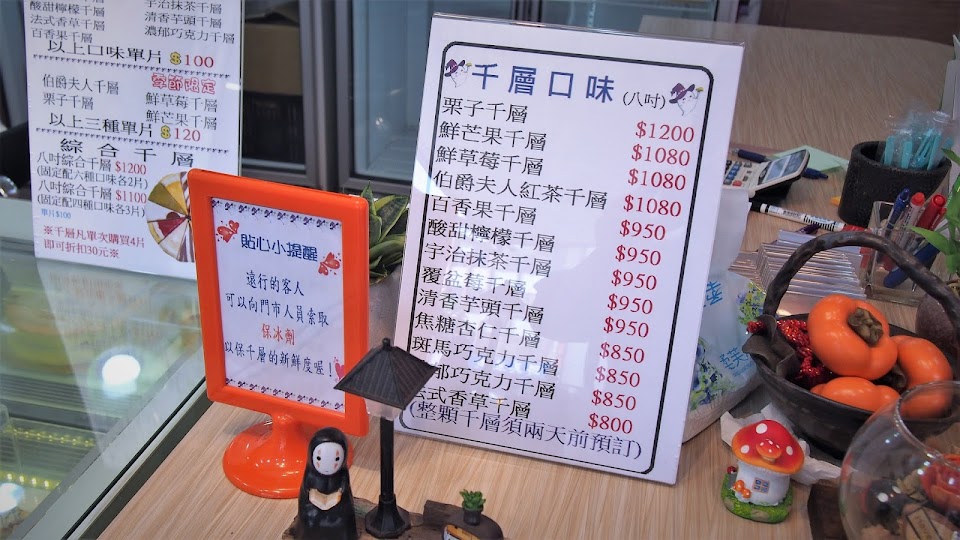 酸甜檸檬千層 宇治抹茶千層
法式香草千層 清香芋頭千層
百香果千層 濃郁巧克力千層
以上口味單片 $100
伯爵夫人千層 季節限定
栗子千層 鮮草莓千層
鮮芒果千層
以上三種單片 $120
綜合千層
八吋綜合千層 $1200
(固定配六種口味各2片)
八吋綜合千層 $1100
(固定配四種口味各3片)
單片$100
※千層凡單次購買4片
即可折扣30元※
貼心小提醒
遠行的客人
可以向門市人員索取
保冰劑
以保千層的新鮮度喔!
千層口味 (八吋)
栗子千層 $1200
鮮芒果千層 $1080
鮮草莓千層 $1080
伯爵夫人紅茶千層 $1080
百香果千層 $950
酸甜檸檬千層 $950
宇治抹茶千層 $950
覆盆莓千層 $950
清香芋頭千層 $950
焦糖杏仁千層 $850
斑馬巧克力千層 $850
郁巧克力千層 $850
式香草千層 $800
(整顆千層須兩天前預訂)